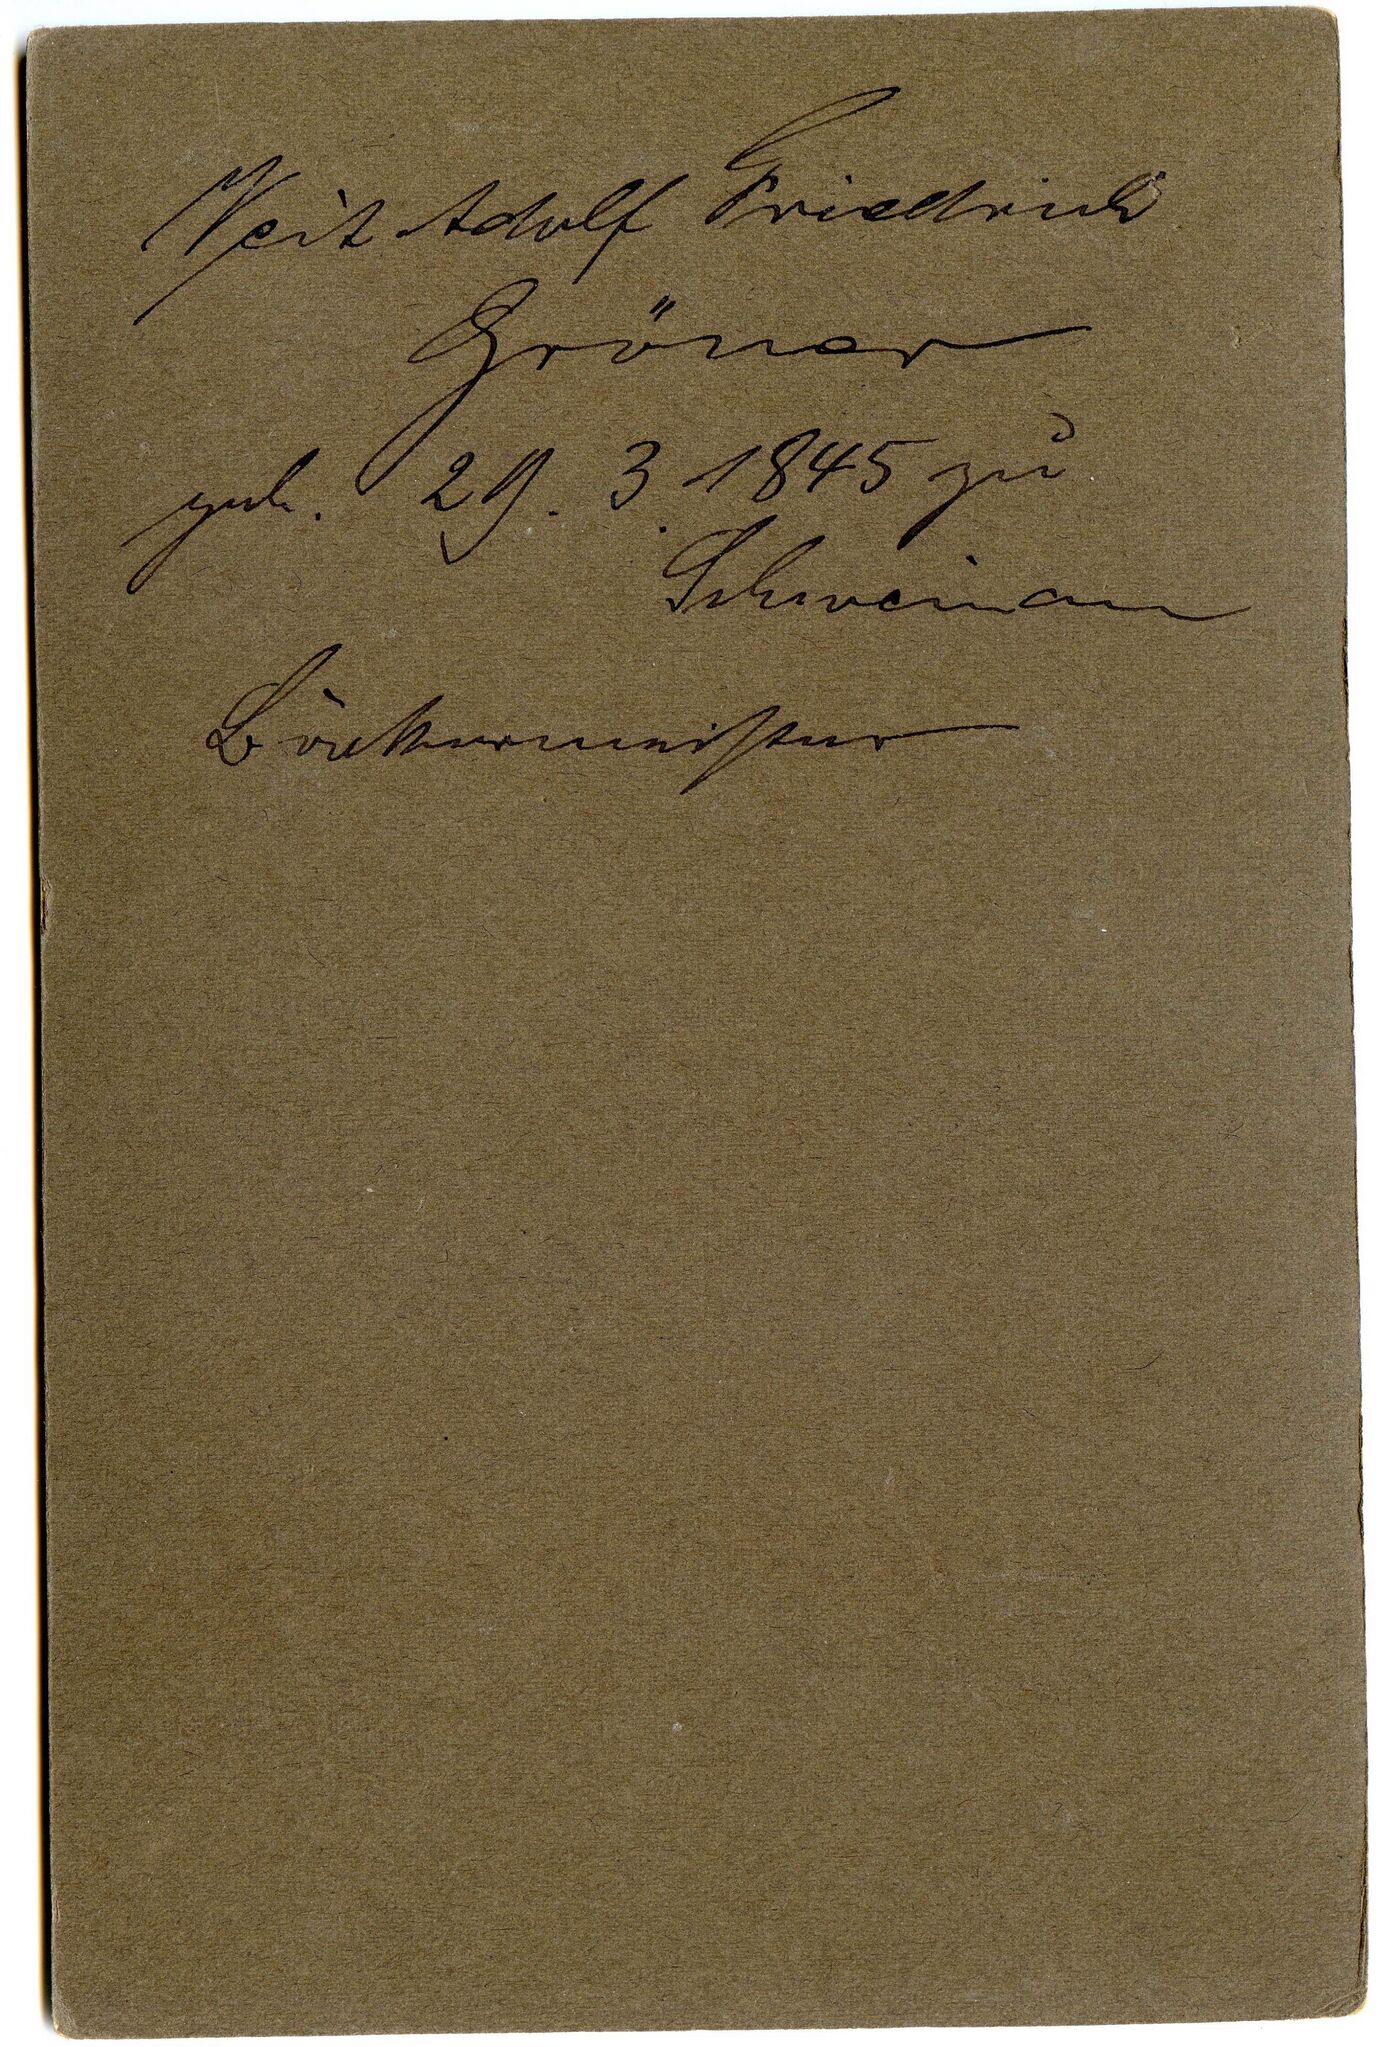 Veit Adolf Friedrich
Gröner
geb. 29. 3. 1845 zu
Schweinau
Bäckermeister